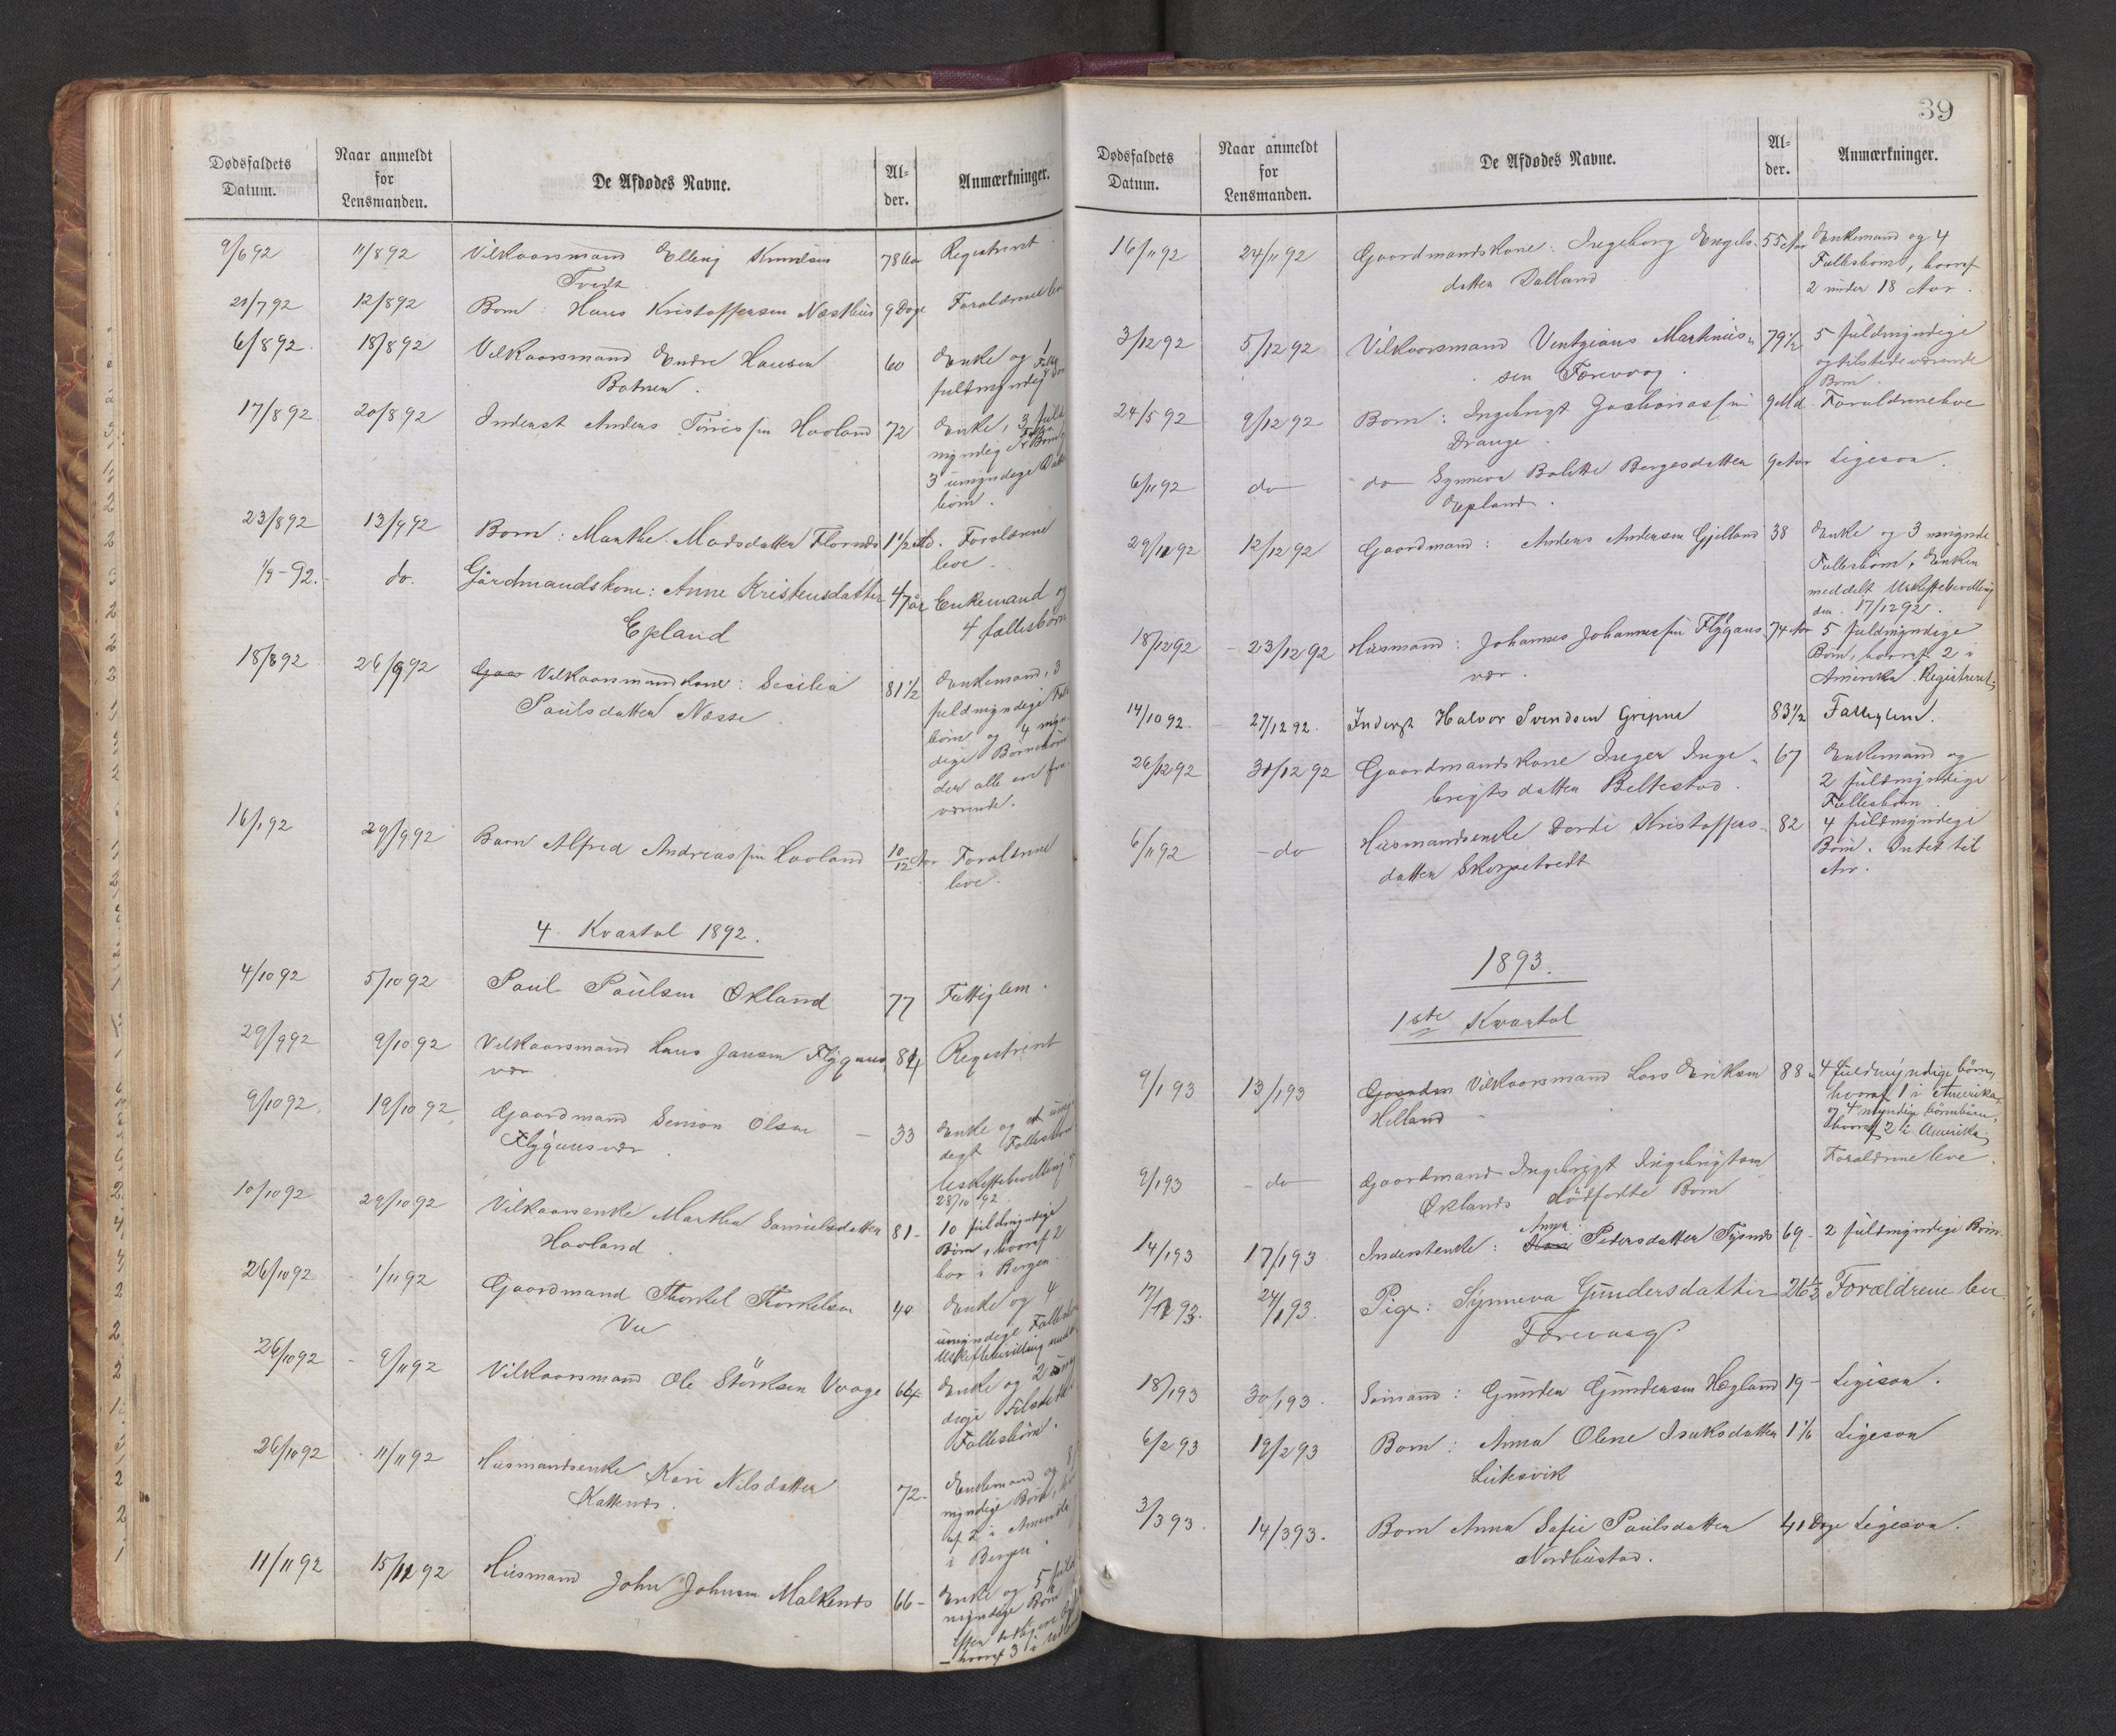 Dødsfaldets Datum.
Naar anmeldt for Lensmanden.
De Afdødes Navne.
Al-der.
Anmærkninger.
9/6 92 11/8 92 Vilkaarsmand Elling Knudsen 78 Aar Registreret
Tvedt
21/7 92 12/8 92 Barn: Hans Kristoffersen Næsthus 9 Dage Forældrene
6/8 92. 18/8 92 Vilkaarsmand Endre Hansen 60 Enke og 1
Botnen. fuldmyndig
17/8 92 20/8 92 Inderst Anders Tørrisßn Haaland 72 Enke, 3
myndige
3 umyndige
børn.
23/8 92 13/9 92 Barn: Marthe Madsdatter Flornes 1 1/2 Md. Forældrene
leve.
1/9 - 92. do. Gårdmandskone: Anne Kristensdatter 47 år Enkemand og
Epland 4 fællesbørn
18/8 92 26/9 92 Gaar Vilkaarsmandskone: Secilia 81 1/2 Enkemand, 3
Paulsdatter Næsse fuldmyndige
børn og 4
dige Børnebørn
der alle ere fra
værende.
16/9 92 29/9 92 Barn Alfred Andreasßn Haaland 10/12 Aar Forældrene
leve.
4 Kvartal 1892.
4/10 92 5/10 92 Paul Paulsen Økland 77 Fattiglem.
29/9 92 9/10 92 Vilkaarsmand Hans Jansen Flygans 84 Registreret
vær
9/10 92. 19/10 92 Gaardmand Simon Olsen – 33 Enke og et
Flygansvær. Fællesbarn
Uskiftebevilling
28/10 92.
10/10 92 29/10 92 Vilkaarsenke Martha Samuelsdatter 81 - 10 fuldmyndige
Haaland. Børn, hvoraf 2
bor i Bergen.
26/10 92 1/11 92 Gaardmand Thorkel Thorkelsen 40 Enke og 4
Vee umyndige
Uskiftebevilling
26/10 92 9/11 92 Vilkaarsmand Ole Størksen Vaage 64 Enke og 2
Fællesbørn.
26/10 92 11/11 92 Husmandsenke Kari Nilsdatter 72 - Enkemand og
Kattenes. myndige Børn,
af 2 i Amerika
i Bergen.
11/11 92 15/11 92 Husmand John Johnsen Malkenes 66 - Enke og 5
myndige Børn
– hvoraf 3 i
39
Dødsfaldets Datum.
Naar anmeldt for Lensmanden.
De Afdødes Navne.
Al-der.
Anmærkninger.
16/11 92 24/11 92 Gaardmandskone: Ingeborg Engels- 55 Aar Enkemand og 4
datter Dalland Fællesbørn, hvoraf
2 under 18 Aar.
3/12 92 5/12 92 Vilkaarsmand Ventzians Martinius- 79 1/2 5 fuldmyndige
sen Færevaag. og tilstedeværende
Børn.
24/5 92 9/12 92 Barn: Ingebrigt Zachariasßn 9 Md. Forældrene leve
Drange.
6/11 92 do – do – Synneva Bolette Bergesdatter 9 Aar Ligesaa.
Epland.
29/11 92 12/12 92 Gaardmand: Anders Andersen Gjelland 38 Enke og 3
Fællesbørn, Enken
meddelt Uskiftebevilling
den 17/12 92.
18/12 92 – 23/12 92 Husmand: Johannes Johannesßn Flygans 74 Aar 5 fuldmyndige
vær. Børn, hvoraf 2 i
Amerika. Registreret.
14/10 92. – 27/12 92. Inderst Halvor Svendsen Gripne 83 1/2 Fattiglem.
26/12 92 31/12 92 Gaardmandskone Inger Inge- 67 Enkemand og
brigtsdatter Beltestad. 2 fuldmyndige
Fællesbørn.
6/11 92 – do Husmandsenke Dordi Kristoffers- 82 4 fuldmyndige
datter Skorpetvedt Børn. Intet til
Arv.
1893.
1ste Kvartal
9/1 93 13/1 93 Gaarden Vilkaarsmand Lars Eriksen 88 4 fuldmyndige børn,
Helland hvoraf 1 i Amerika,
og 4 myndige børnebørn,
hvoraf 2 i Amerika.
9/1 93 – do – Gaardmand Ingebrigt Ingebrigtsen Forældrene leve.
Øklands dødfødte Barn
Anna
14/1 93 17/1 93 Inderstenke: Pedersdatter Tysnes 69 - 2 fuldmyndige Børn.
17/1 93. 24/1 93. Pige: Synneva Gundersdatter 26 1/3 Forældrene lever
Færevaag.
18/1 93 30/1 93. Sømand: Gunder Gundersen Hægland 19 – Ligesaa.
6/2 93 19/2 93 Barn: Anna Olene Isaksdatter 1 1/6 Ligesaa
Lutesvik
3/3 93. 14/3 93. Barn Anna Sofie Paulsdatter 41 Dage Ligesaa.
Nordhustad.